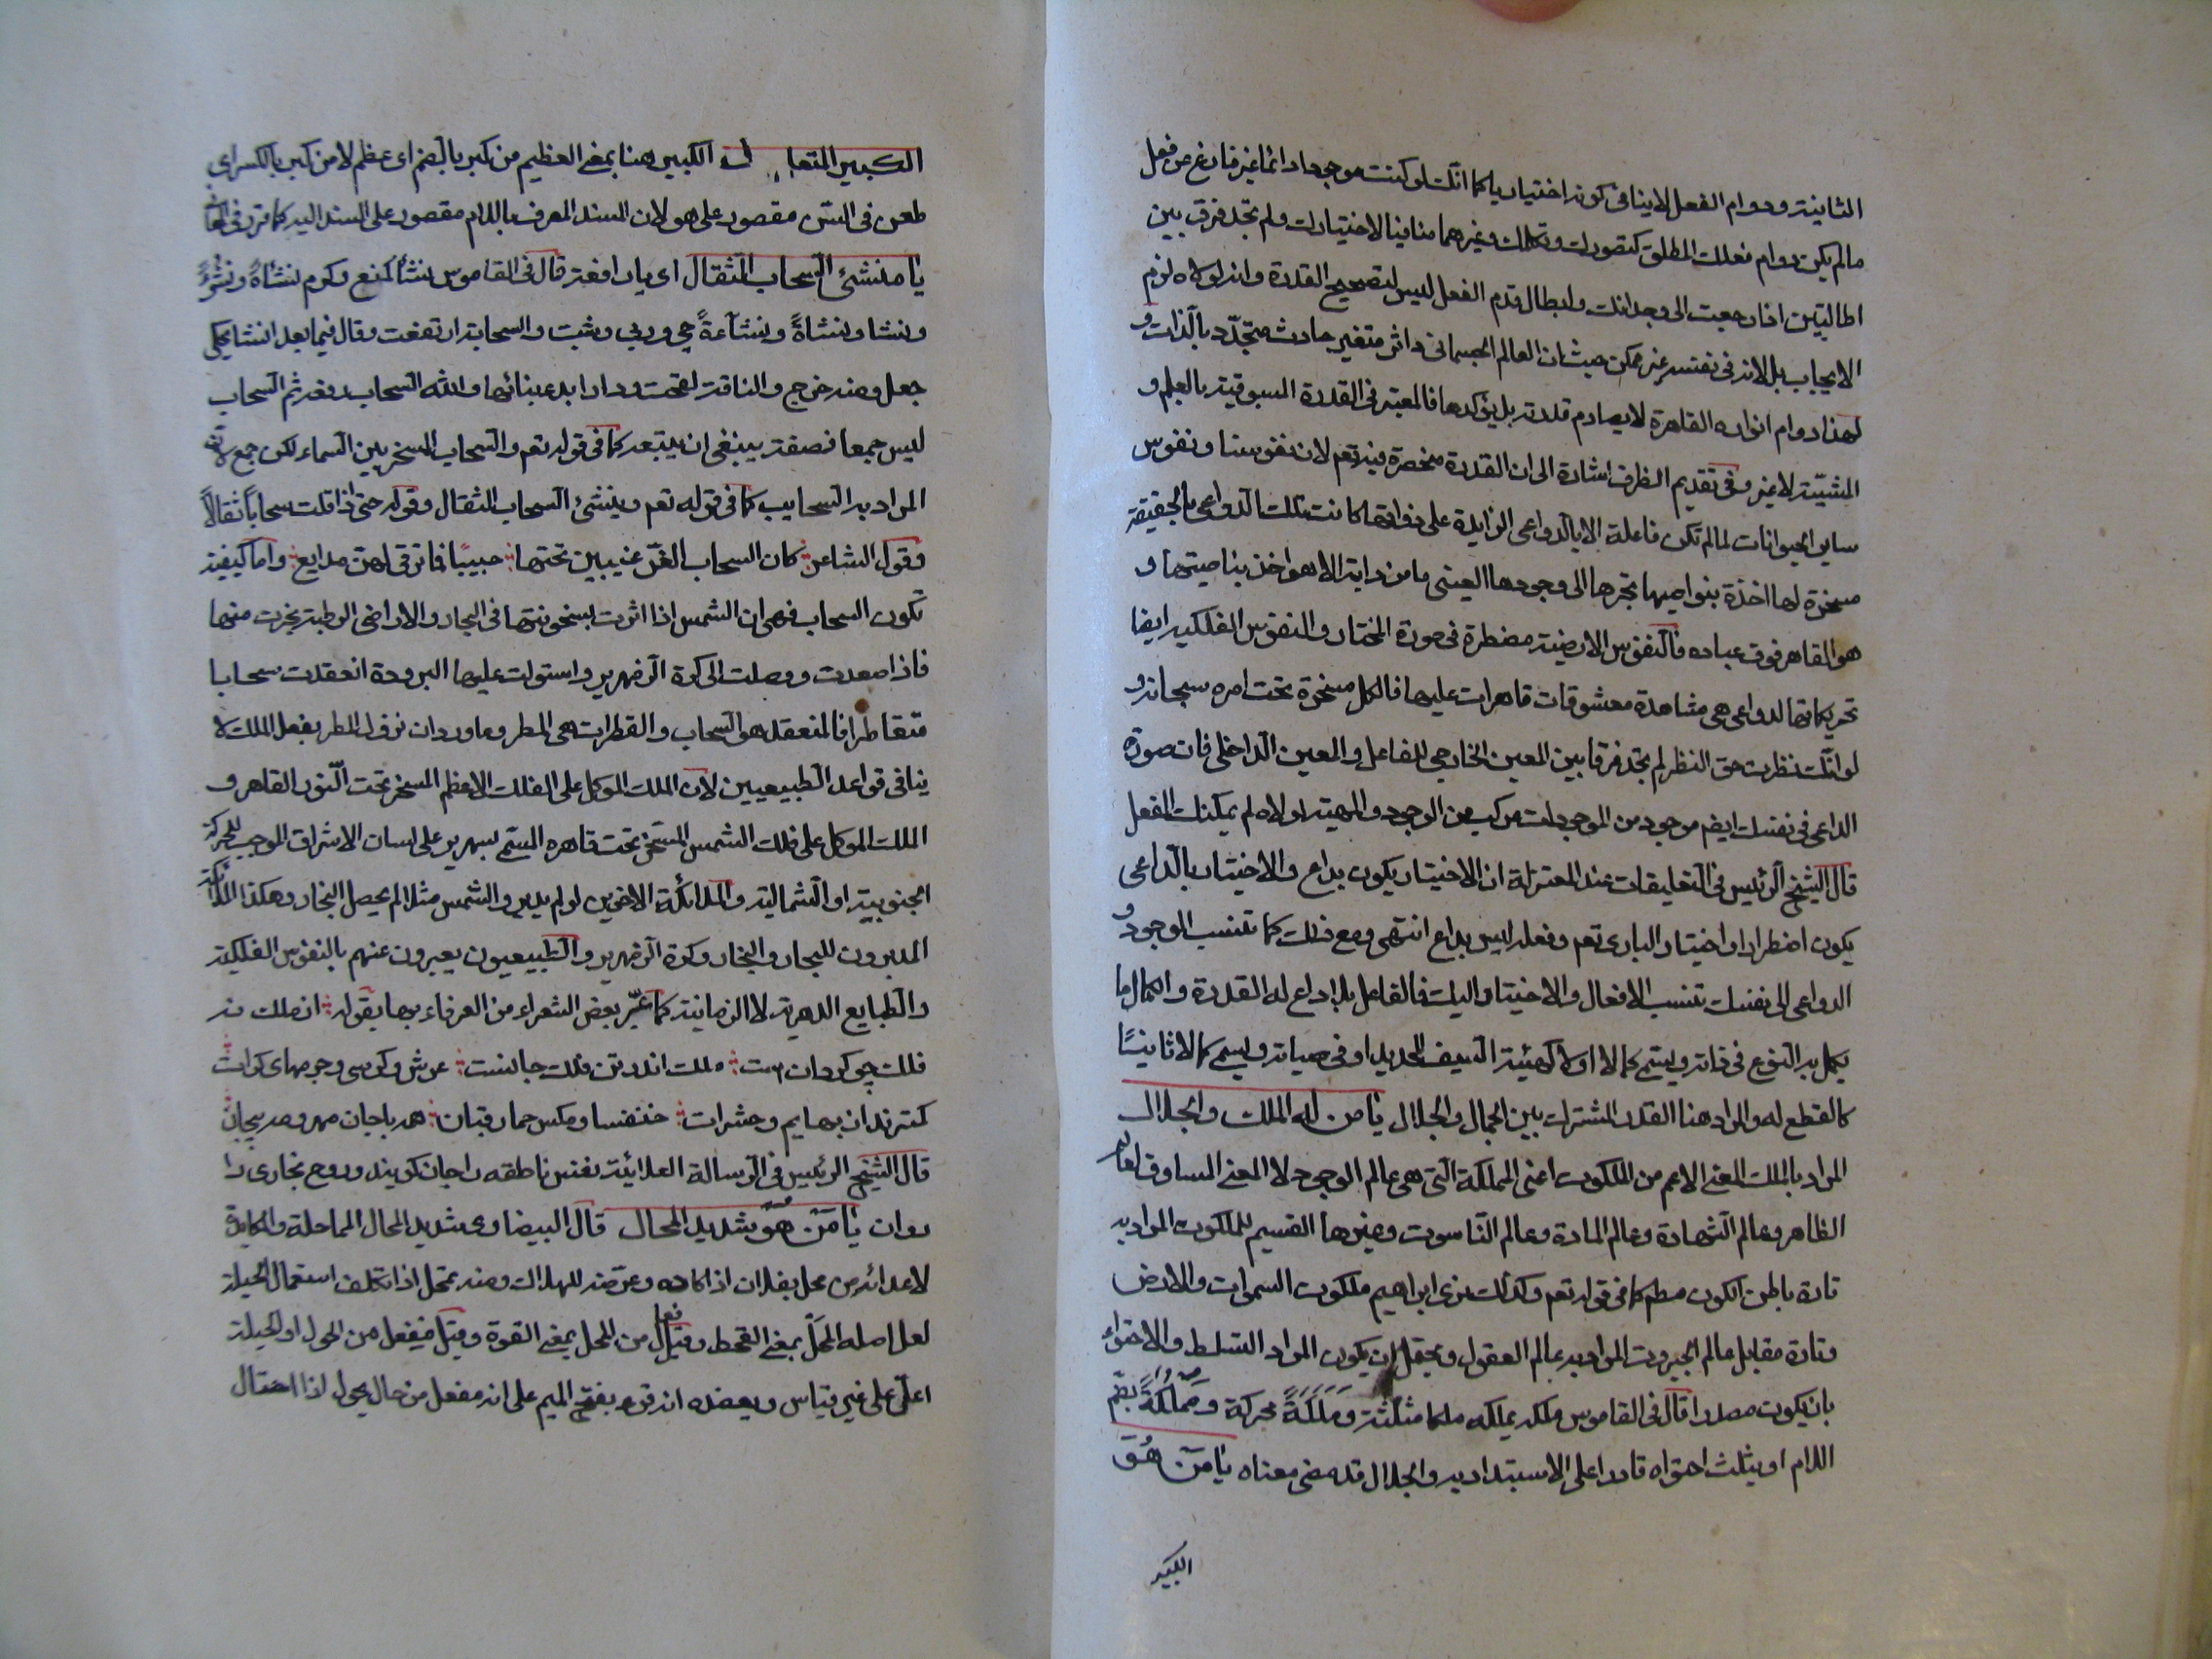 الثانية ودوام الفعل لا ينافى كونه اختياريا كما انك لو كنت موجودا دائما غير فارغ عن فعل
ما لم يكن دوام فعلك المطلق كتصورك وتكلمك وغيرهما منافيا لاختيارك ولم تجد فرقا بين
الحالتين اذا رجعت الى وجدانك وابطال قدم الفعل ليس لتصحيح القدرة وانه لولاه لزم
الايجاب بل لانه فى نفسه غير ممكن حيث ان العالم الجسمانى داثر متغير حادث متجدد بالذات و
لهذا دوام انواره القاهرة لا يصادم قدرته بل يؤكدها فالمعتبر فى القدرة المسبوقية بالعلم و
المشية لا غير وفى تقديم الظرف اشارة الى ان القدرة منحصرة فيه تعم لان نفوسنا ونفوس
ساير الحيوانات لما لم تكن فاعلة الا بالدواعى الزايدة على ذواتها كانت تلك الدواعى بالحقيقة
مسخرة لها اخذة بنواصيها تجرها الى وجودها العينى ما من دابة الا هو اخذ بناصيتها و
هو القاهر فوق عباده فالنفوس الارضية مضطرة فى صورة المختار والنفوس الفلكية ايضا
تحريكاتها لدواعى هى مشاهدة معشوقات قاهرات عليها فالكل مسخرة تحت امره سبحانه و
لو انك نظرت حق النظر لم تجد فرقا بين المعين الخارجى للفاعل والمعين الداخلى فان صورة
الداعى فى نفسك ايضم موجود من الموجودات مركب من الوجود والمهية لولاه لم يمكنك الفعل
قال الشيخ الرئيس فى التعليقات عند المعتزلة ان الاختيار يكون بداع والاختيار بالداعى
يكون اضطرارا واختيار البارى تعم وفعله ليس بداع انتهى ومع ذلك كما تنسب الوجود و
الدواعى الى نفسك تنسب الافعال والاختيار اليك فالفاعل بلا داع له القدرة والكمال ما
يكمل به النوع فى ذاته ويسمى كمالا اولا كهيئة السيف للحديد او فى صفاته ويسمى كمالا ثانيا
كالقطع له والمراد هنا القدر المشترك بين الجمال والجلال يا من له الملك والجلال
المراد بالملك المعنى الاعم من الملكوت اعنى المملكة التى هى عالم الوجود لا المعنى المساوق لعالم
الظاهر وعالم الشهادة وعالم المادة وعالم الناسوت وغيرها القسيم للملكوت المراد به
تارة باطن الكون مطم كما فى قوله تعم وكذلك نرى ابراهيم ملكوت السموات والارض
وتارة مقابل عالم الجبروت المراد به عالم العقول ويحتمل ان يكون المراد التسلط والاحتواء
بان يكون مصدرا قال فى القاموس ملكه يملكه ملكا مثلثة ومَلَكَةً محركة ومملكةً بضم
اللام او يثلث احتواه قادرا على الاستبداد به والجلال قد مضى معناه يا من هو
الكبير
الكبير المتعال الكبير هنا بمعنى العظيم من كبر بالضم اى عظم لا من كبر بالكسر اى
طعن فى السن مقصور على هو لان المسند المعرف باللام مقصور على المسند اليه كما قرر فى المعانى
يا منشئ السحاب الثقال اى يا رافعة قال فى القاموس نشأ كمنع وكرم نشأة ونشوءً
ونشأ ونشاةً ونشآءةً حيى وربى وشب والسحابة ارتفعت وقال فيما بعد انشأ يحكى
جعل ومنه خرج والناقة لقحت ودارا بدء بنائها والله السحاب رفعه ثم السحاب
ليس جمعا فصفته ينبغى ان يتبعه كما فى قوله تعم والسحاب المسخر بين السماء لكن جمع لان
المراد به السحايب كما فى قوله تعم وينشئ السحاب الثقال وقوله حتى اذا اقلت سحابا ثقالاً
وقول الشاعر كان السحاب الغر غيبين تحتها حبيبا فما ترقى لهن مدامع واما كيفية
تكون السحاب فهى ان الشمس اذا اثرت بسخونتها فى البحار والاراضى الرطبة بخرت منها
فاذا صعدت ووصلت الى كرة الزمهرير واستولت عليها البرودة انعقدت سحابا
متقاطرا فالمنعقد هو السحاب والقطرات هى المطر وما ورد ان نزول المطر بفعل الملك لا
ينافى قواعد الطبيعيين لان الملك الموكل على الفلك الاعظم المسخر تحت النور القاهر و
الملك الموكل على فلك الشمس المسخر تحت قاهره المسمى بسهرير على لسان الاشراق الموجب للحركة
الجنوبية او الشمالية والملائكة الاخرين لو لم يدبروا الشمس مثلا لم يحصل البخار وهكذا الملائكة
المدبرون للبحار والبخار وكرة الزمهرير والطبيعيون يعبرون عنهم بالنفوس الفلكية
والطبايع الدهرية لا الزمانية كما عبر بعض الشعراء من العرفاء بها بقوله از ملك نه
فلك چو كردان است ملك اندر تن فلك جانست عرش وكرسى وجرمهاى كرات
كمترند از بهايم وحشرات خنفسا ومكس حمار قبان همه باجان مهر ومه بيجان
قال الشيخ الرئيس فى الرسالة العلائية نفس ناطقه را جان كويند وروح بخارى را
روان يا من هو شديد المحال قال البيضاوى شديد المحال المماحلة والمكايدة
لاعدائه من محل بفلان اذا كاده وعرضه للهلاك ومنه تمحل اذا تكلف استعمال الحيلة
لعل اصله المحل بمعنى القحط وقيل فعال من المحل بمعنى القوة وقيل مفعل من الحول او الحيلة
اعل على غير قياس ويعضده انه قرء بفتح الميم على انه مفعل من حال يحول اذا احتال